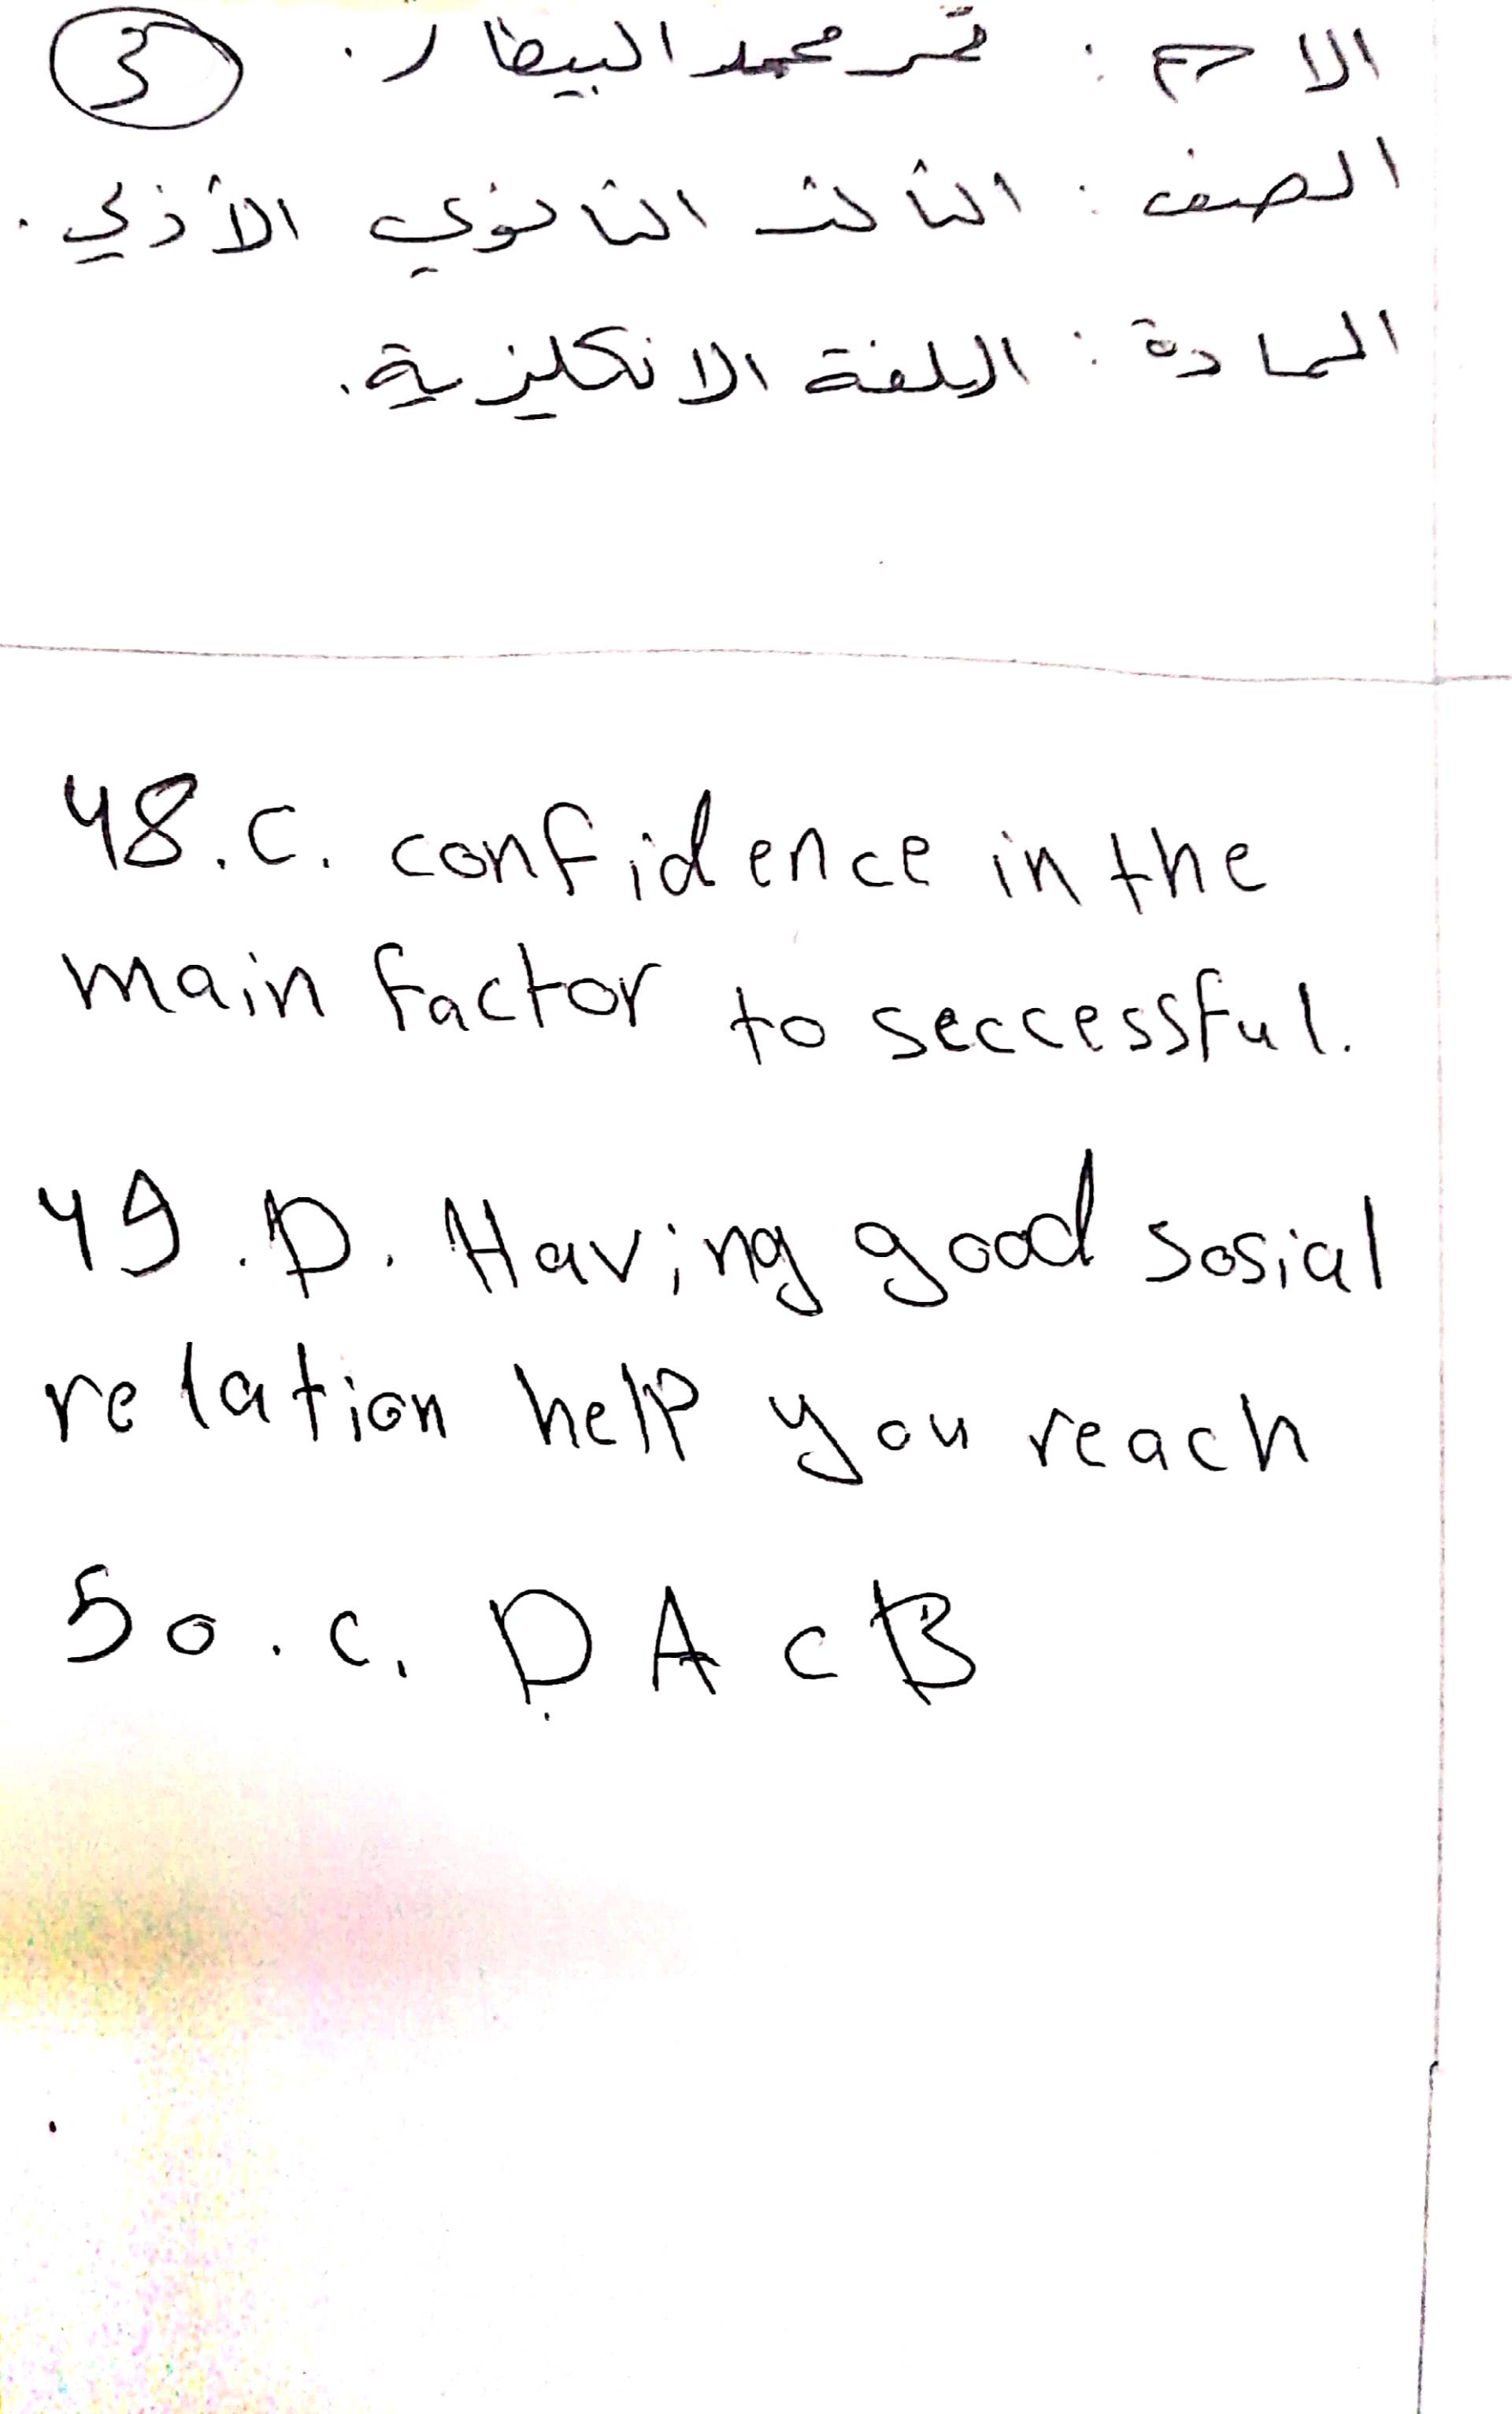 الاسم : قمر محمد البيطار. 3
الصف : الثالث الثانوي الأدبي.
المادة : اللغة الانكليزية.
48. C. confidence in the
main factor to seccessful.
49. D. Having good sosial
relation help you reach
50. C. D A C B